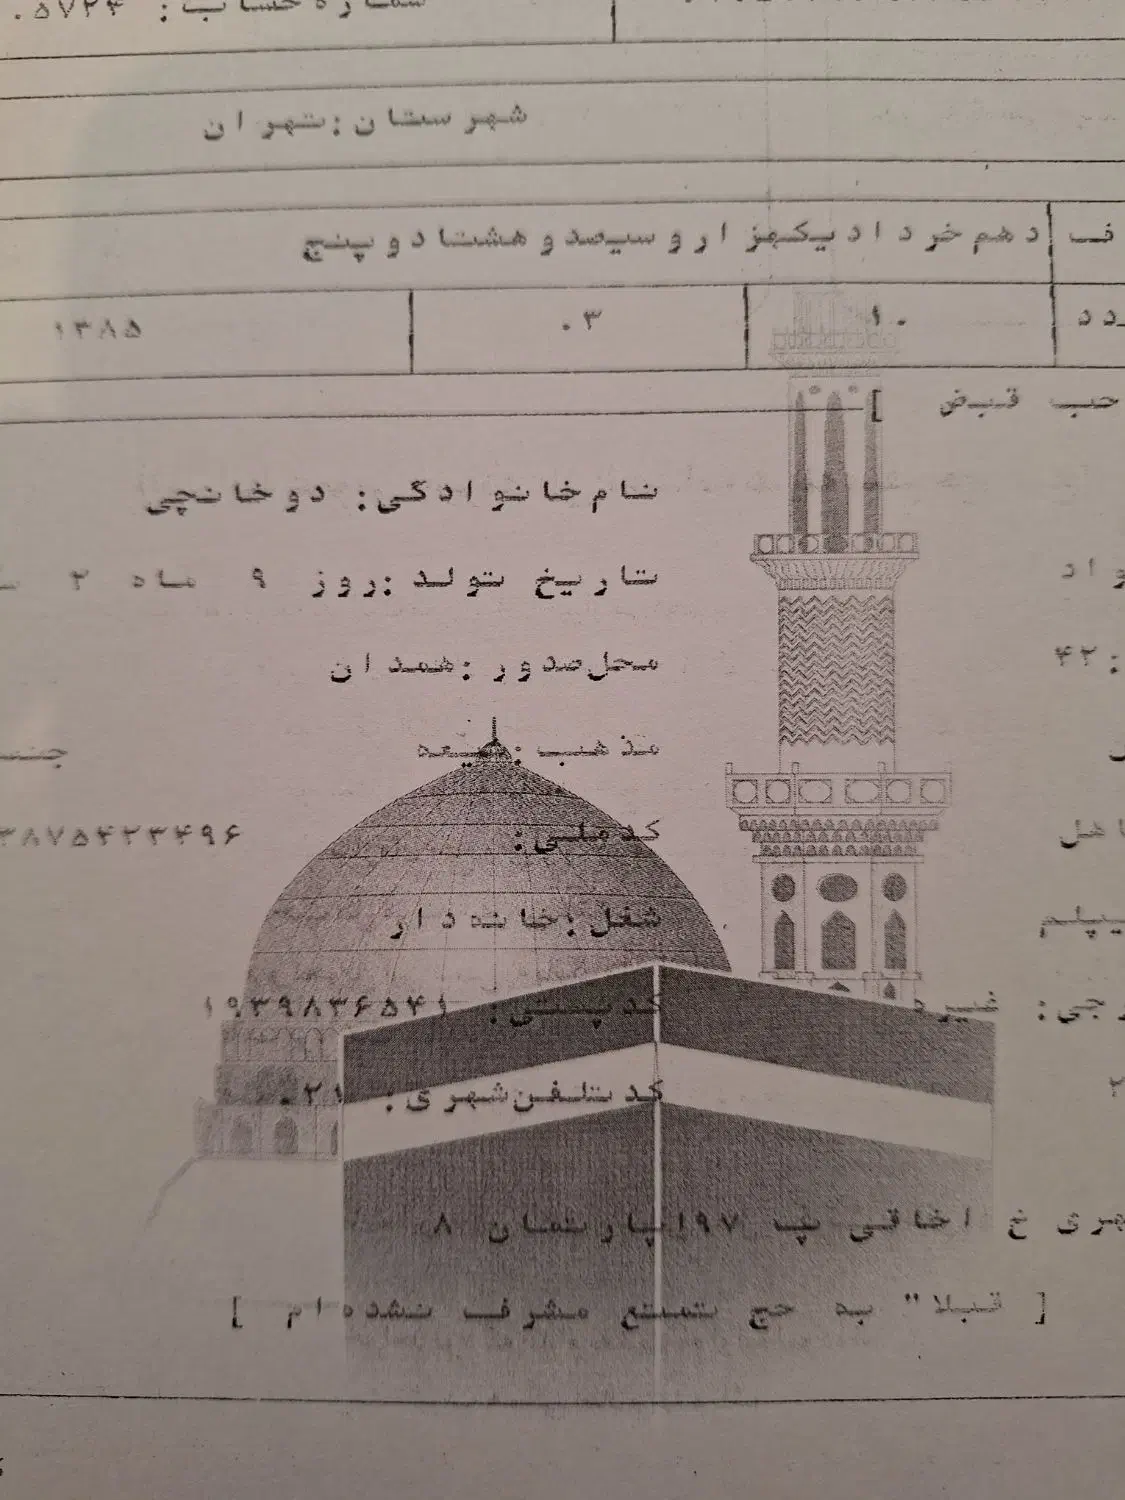 شماره حساب: ۰۵۷۲۴
شهرستان:تهران
ف دهم خرداد یکهزاروسیصدوهشتادوپنج
۱۰ ۰۳ ۱۳۸۵
قبض [
نام خانوادگی: دوخانچی
تاریخ تولد:روز ۹ ماه ۲
:۴۲ محل صدور:همدان
مذهب:شیعه
کدملی: ۳۸۷۵۴۲۳۴۹۶
شغل:خانه دار
کدپستی: ۱۹۳۹۸۳۶۵۴۱
۲ کد تلفن شهری: ۰۲۱
خ اخاقی پ ۱۹۷پارتمان ۸
[ قبلا" به حج تمتع مشرف نشده ام ]